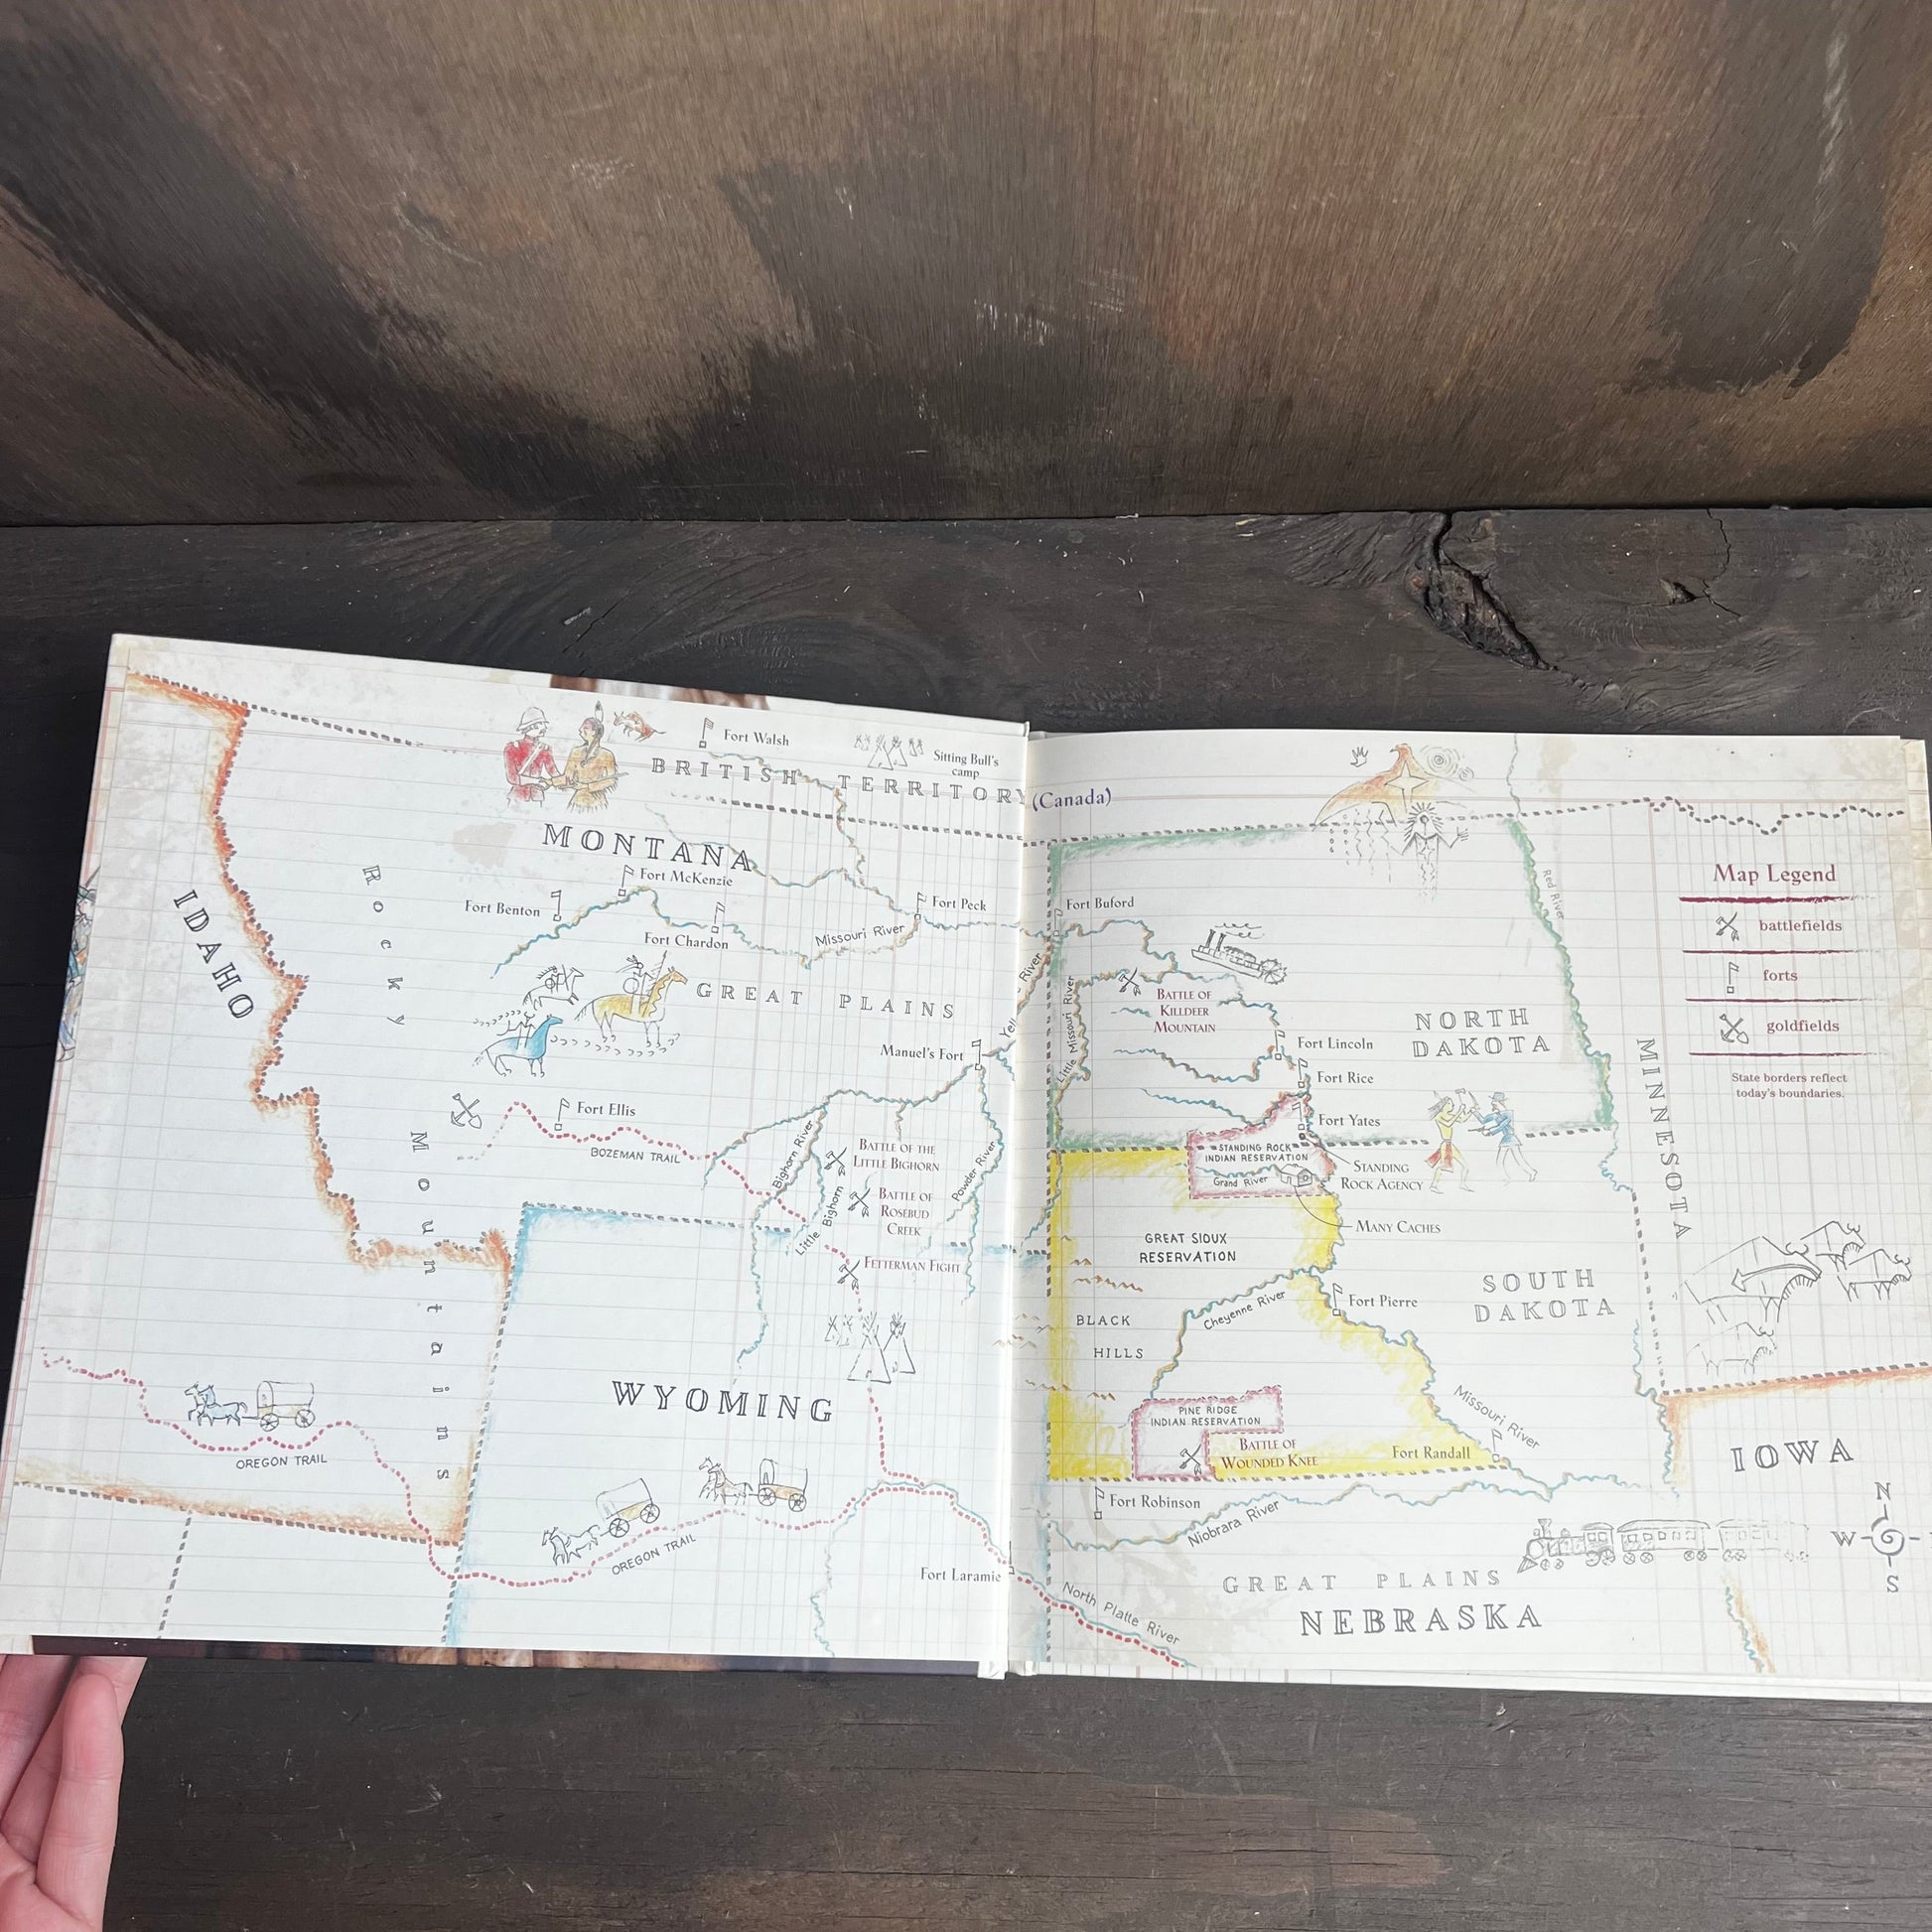 Fort Walsh
Sitting Bull's
camp
BRITISH TERRITORY (Canada)
MONTANA
Fort McKenzie
Fort Benton
Fort Chardon
Missouri River
Fort Peck
IDAHO
Rocky Mountains
GREAT PLAINS
River
Manuel's Fort
Fort Ellis
BOZEMAN TRAIL
Bighorn River
Little Bighorn
BATTLE OF THE
LITTLE BIGHORN
BATTLE OF
ROSEBUD
CREEK
Powder River
FETTERMAN FIGHT
WYOMING
OREGON TRAIL
OREGON TRAIL
Fort Laramie
Fort Buford
Little Missouri River
BATTLE OF
KILLDEER
MOUNTAIN
Red River
NORTH
DAKOTA
Fort Lincoln
Fort Rice
Fort Yates
STANDING ROCK
INDIAN RESERVATION
Grand River
STANDING
ROCK AGENCY
MANY CACHES
GREAT SIOUX
RESERVATION
Cheyenne River
Fort Pierre
SOUTH
DAKOTA
BLACK
HILLS
PINE RIDGE
INDIAN RESERVATION
BATTLE OF
WOUNDED KNEE
Missouri River
Fort Randall
Fort Robinson
Niobrara River
North Platte River
GREAT PLAINS
NEBRASKA
MINNESOTA
IOWA
Map Legend
battlefields
forts
goldfields
State borders reflect
today's boundaries.
N
W
S